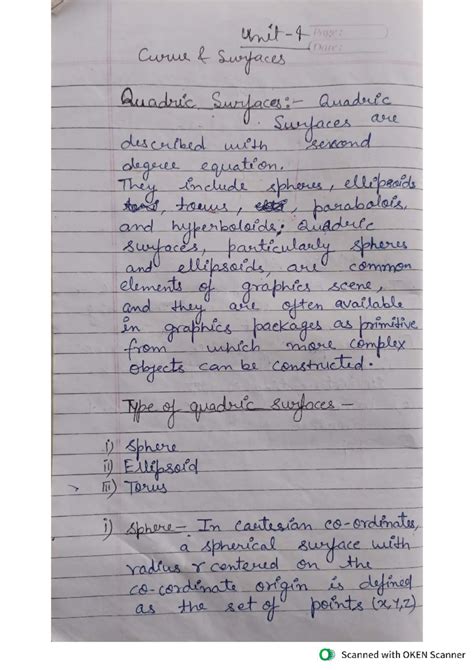 Unit-4
Page:
Date:
Curve & Surfaces
Quadric Surfaces:- Quadric
Surfaces are
described with second
degree equation.
They include spheres, ellipsoids
torus, parabolois,
and hyperboloids; Quadric
surfaces, particularly spheres
and ellipsoids, are common
elements of graphics scene,
and they are often available
in graphics packages as primitive
from which more complex
objects can be constructed.
Type of quadric surfaces -
i) Sphere
ii) Ellipsoid
iii) Torus
i) Sphere - In cartesian co-ordinates,
a spherical surface with
radius r centered on the
co-coordinate origin is defined
as the set of points (x,y,z)
Scanned with OKEN Scanner